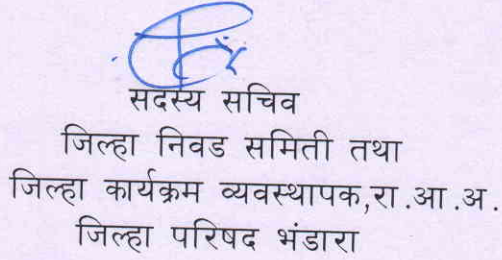 सदस्य सचिव
जिल्हा निवड समिती तथा
जिल्हा कार्यक्रम व्यवस्थापक,रा.आ.अ.
जिल्हा परिषद भंडारा